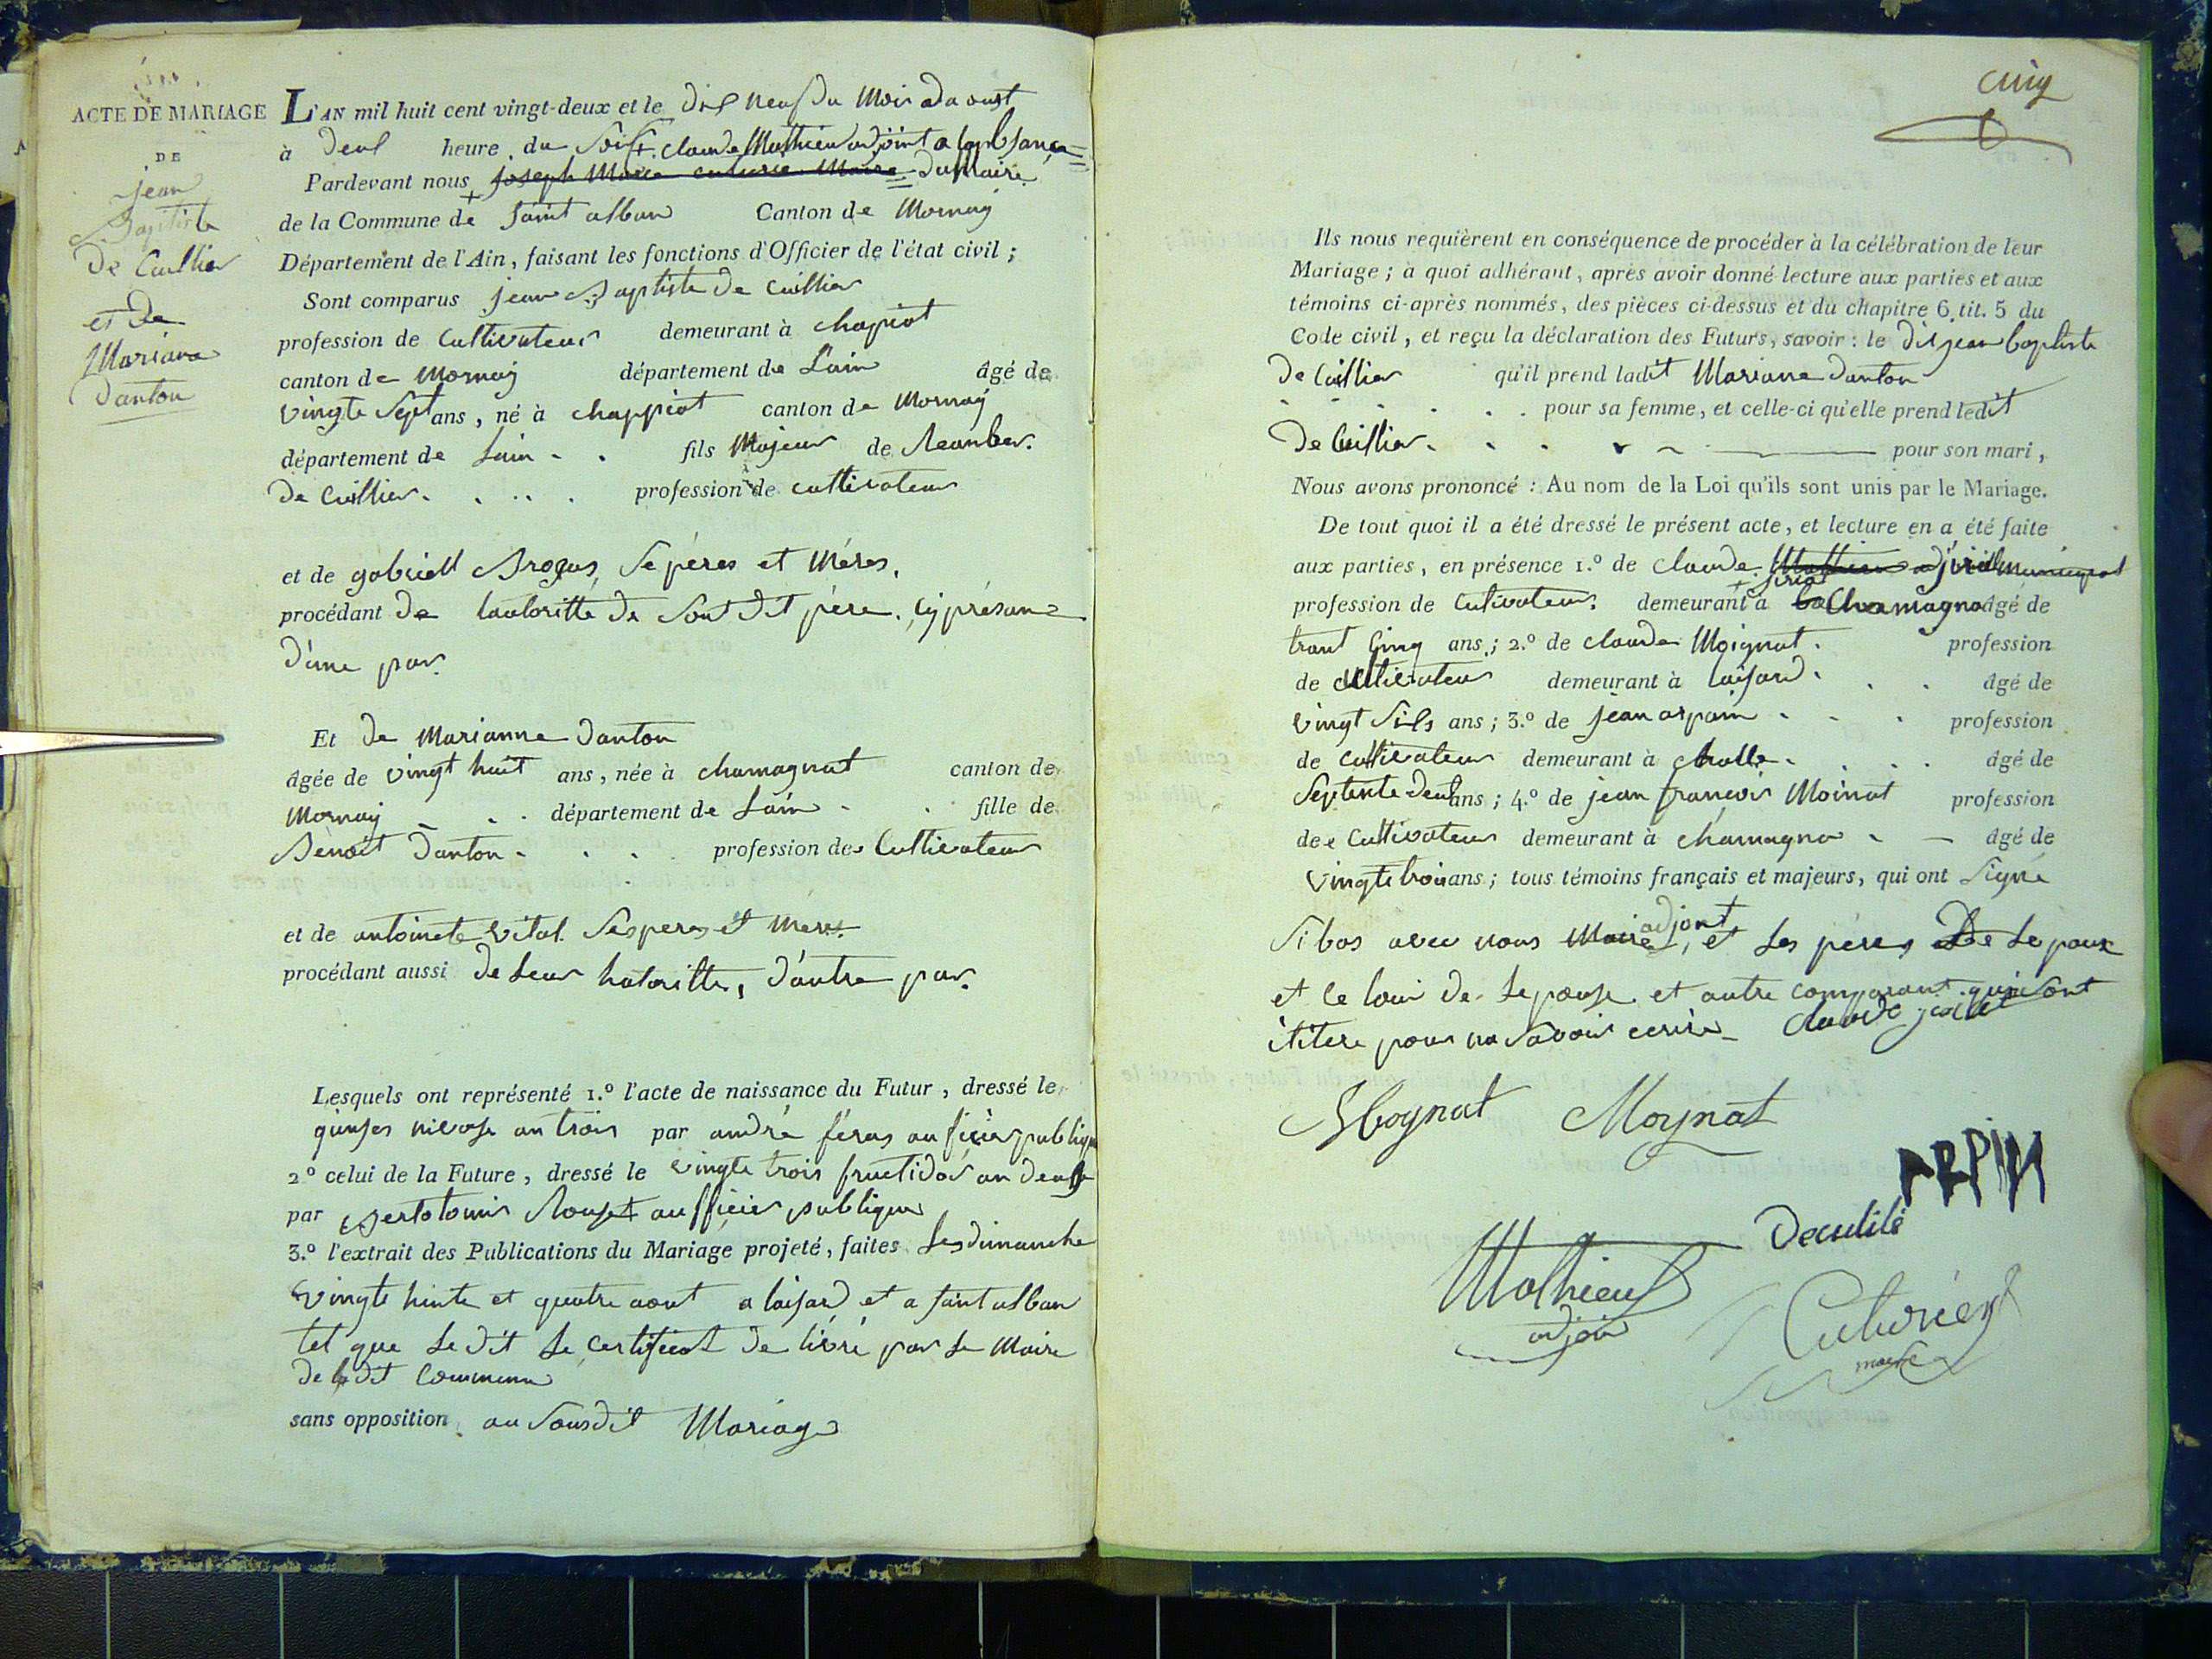 ACTE DE MARIAGE
DE
jean
Baptiste
De Cuillier
et De
Mariana
Danton
L'AN mil huit cent vingt-deux et le dix neuf du Mois da oust
à deux heure du Soir + Claude Mathieu adjoint a Lapbsance
Pardevant nous + joseph Marie cuturie Maire Du Maire
de la Commune de saint alban Canton de Mornay
Département de l'Ain, faisant les fonctions d'Officier de l'état civil ;
Sont comparus jean Baptiste De Cuillier
profession de Cultivateur demeurant à chapiot
canton de Mornay département de Lain âgé de
vingte Sept ans, né à chappiot canton de Mornay
département de Lain fils Majeur de
De Cuillier profession de cultivateur
et de gabriell Brogas Se pères et Mères,
procédant De lautoritte De Son Dit père, cy présan
D'une par.
Et De Marianne Danton
âgée de vingt huit ans, née à chamagnat canton de
Mornay département de Lain fille de
Benoit Danton profession de Cultivateur
et de antoinete vital Ses peres et Mere
procédant aussi de Leur hutoritte, D'autre par.
Lesquels ont représenté 1.º l'acte de naissance du Futur, dressé le
quinses nivose an trois par andré féras au ficier publique
2º celui de la Future, dressé le vingte trois fructidor an deux
par Bertolomis Rouset aufficier publique
3.º l'extrait des Publications du Mariage projeté, faites Les dimanche
vingte huite et quatre aout a laisard et a saint alban
tel que Le dit Le Certificat De livré par Le Maire
De la dit Commune
sans opposition au Sousdit Mariage
cinq
Ils nous requièrent en conséquence de procéder à la célébration de leur
Mariage ; à quoi adhérant, après avoir donné lecture aux parties et aux
témoins ci-après nommés, des pièces ci-dessus et du chapitre 6, tit. 5 du
Code civil, et reçu la déclaration des Futurs, savoir : le Dit jean baptiste
De Cuillier qu'il prend ladit Mariane Danton
pour sa femme, et celle-ci qu'elle prend ledit
De Cuillier pour son mari,
Nous avons prononcé : Au nom de la Loi qu'ils sont unis par le Mariage.
De tout quoi il a été dressé le présent acte, et lecture en a été faite
aux parties, en présence 1.º de Claude Mathieu
profession de Cutivateur demeurant à Chamagna âgé de
trant Cinq ans ; 2.º de claude Moignat profession
de cultivateur demeurant à laisard âgé de
vingt Sils ans ; 3.º de jean arpain profession
de Cultivateur demeurant à challe âgé de
Septente deux ans ; 4.º de jean françois Moinat profession
de Cultivateur demeurant à chamagna âgé de
vingte trois ans ; tous témoins français et majeurs, qui ont Signé
Si bas avec nous Maire adjont, et Les péres De Le poux
et Ce loui De Le pouse et autre comparant qui Sont
ititere pour na Savoir ecrire Claude
Moynat Moynat
ARPIN
Decuilié
Mathieu
adjoin
Cuturier
maire